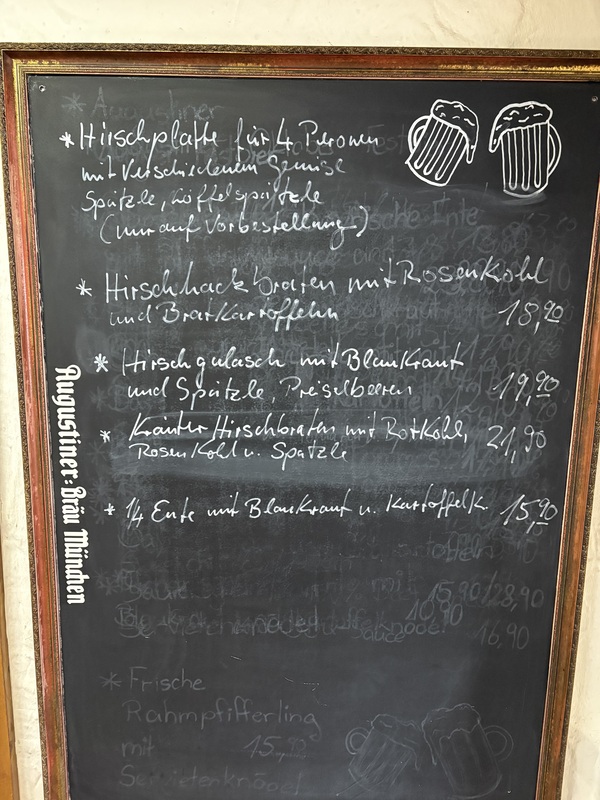 * Hirschplatte für 4 Personen
mit Verschiedenem Gemüse
Spätzle, Löffelspätzle
(nur auf Vorbestellung)
* Hirschhackbraten mit Rosenkohl
und Bratkartoffeln 18,90
* Hirschgulasch mit Blaukraut
und Spätzle, Preiselbeeren 19,90
* Kräuter Hirschbraten mit Rotkohl, 21,90
Rosenkohl u. Spätzle
* 1/4 Ente mit Blaukraut u. Kartoffelk. 15,90
Augustiner-Bräu München
15,90/28,90
10,90
16,90
* Frische
Rahmpfifferling
mit 15,90
Servietenknödel